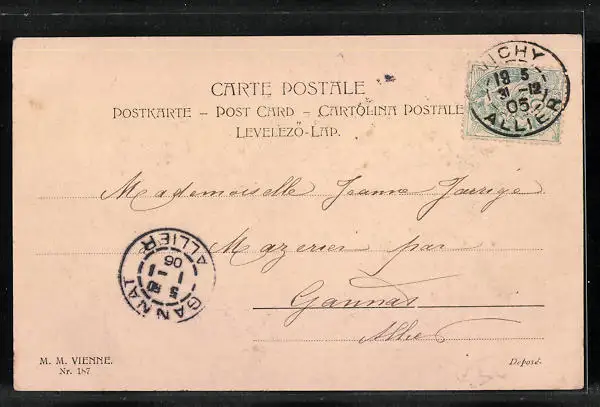 CARTE POSTALE
POSTKARTE – POST CARD – CARTOLINA POSTALE
LEVELEZŐ-LAP.
VICHY
18 5
31 -12
05
ALLIER
Mademoiselle Jeanne Jarrige
Mazerier par
Gannat
Allier
GANNAT
5
1 - 1
06
ALLIER
M. M. VIENNE.
Nr. 187
Deposé.